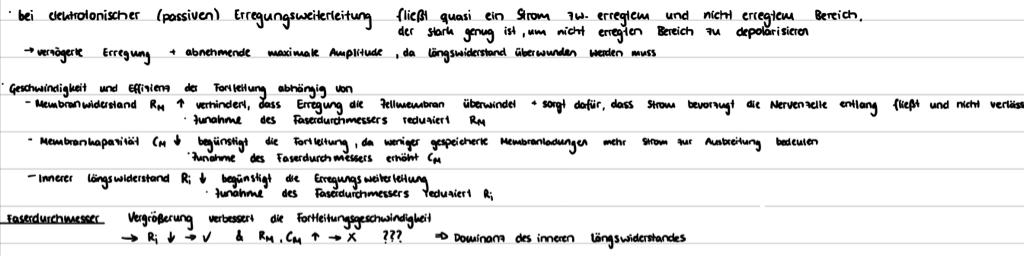 · bei elektrotonischer (passiven) Erregungsweiterleitung fließt quasi ein Strom zw. erregtem und nicht erregtem Bereich,
der stark genug ist, um nicht erregten Bereich zu depolarisieren
→ verzögerte Erregung + abnehmende maximale Amplitude, da Längswiderstand überwunden werden muss
· Geschwindigkeit und Effizienz der Fortleitung abhängig von
- Membranwiderstand RM ↑ verhindert, dass Erregung die Zellmembran überwindet + sorgt dafür, dass Strom bevorzugt die Nervenzelle entlang fließt und nicht verläss
· Zunahme des Faserdurchmessers reduziert RM
- Membrankapazität CM ↓ begünstigt die Fortleitung, da weniger gespeicherte Membranladungen mehr Strom zur Ausbreitung bedeuten
· Zunahme des Faserdurchmessers erhöht CM
- Innerer Längswiderstand Ri ↓ begünstigt die Erregungsweiterleitung
· Zunahme des Faserdurchmessers reduziert Ri
Faserdurchmesser Vergrößerung verbessert die Fortleitungsgeschwindigkeit
→ Ri ↓ → ✓ & RM, CM ↑ → X ??? ⇒ Dominanz des inneren Längswiderstandes